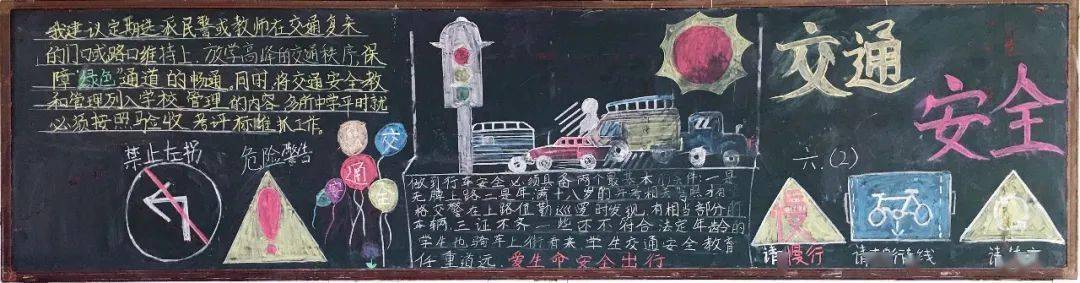 我建议定期选派民警或教师在交通复杂
的门口或路口维持上、放学高峰的交通秩序,保
障"绿色"通道的畅通。同时,将交通安全教
和管理列入学校管理的内容,各所中学平时就
必须按照验收考评标准抓工作。
禁止左拐
危险警告
交
通
安
全
做到行车安全必须具备两个最基本的条件:一是
牌上路二是年满十八岁的
交警在上路值勤巡逻时发现,有相当部分的
车辆三证不齐一些还不符合法定年龄的
学生也骑车上街看来学生交通安全教育
任重道远.爱生命安全出行
交通
安全
六.(2)
慢
请慢行
请 行线
请